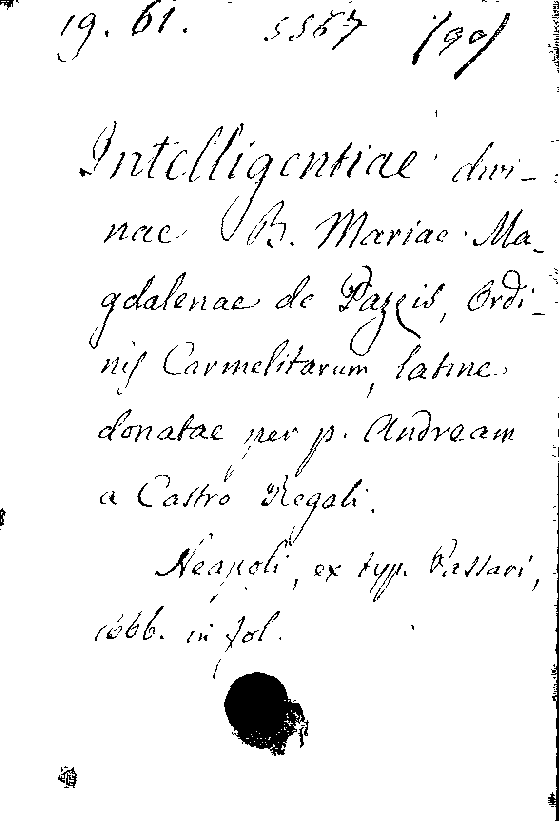 19. 61. 5567 /90/
Intelligentiae divi-
nae B. Mariae Ma-
gdalenae de Pazzis, Ordi-
nis Carmelitarum, latine
donatae per p. Andream
a Castro Regali.
Neapoli, ex typ. Passari,
1666. in fol.